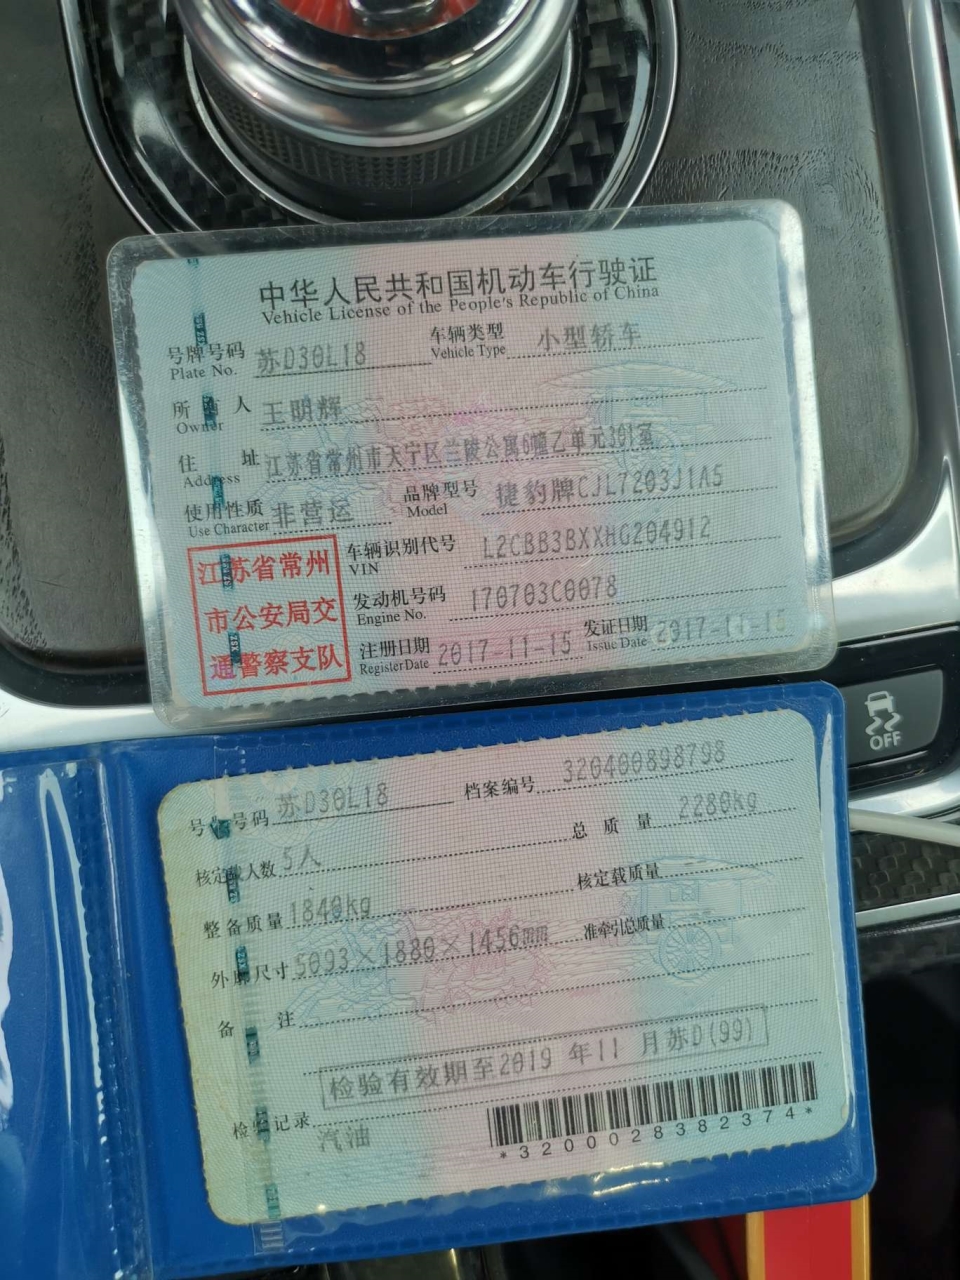 中华人民共和国机动车行驶证
Vehicle License of the People's Republic of China
号牌号码 苏D30L18 车辆类型 小型轿车
Plate No. Vehicle Type
所 人 王明辉
Owner
住 址 江苏省常州市天宁区兰陵公寓6幢乙单元301室
Address
使用性质 非营运 品牌型号 捷豹牌CJL7203J1A5
Use Character Model
江苏省常州
市公安局交
通警察支队
车辆识别代号 L2CBB3BXXHG204912
VIN
发动机号码 170703C0078
Engine No.
注册日期 2017-11-15 发证日期 2017-11-15
Register Date Issue Date
OFF
号 号码 苏D30L18 档案编号 320400898798
核定载人数 5人 总质量 2280kg
整备质量 1840kg 核定载质量
外廓尺寸 5093×1880×1456mm 准牵引总质量
备 注
检验有效期至2019 年11 月苏D(99)
检验记录
汽油
*3200028382374*